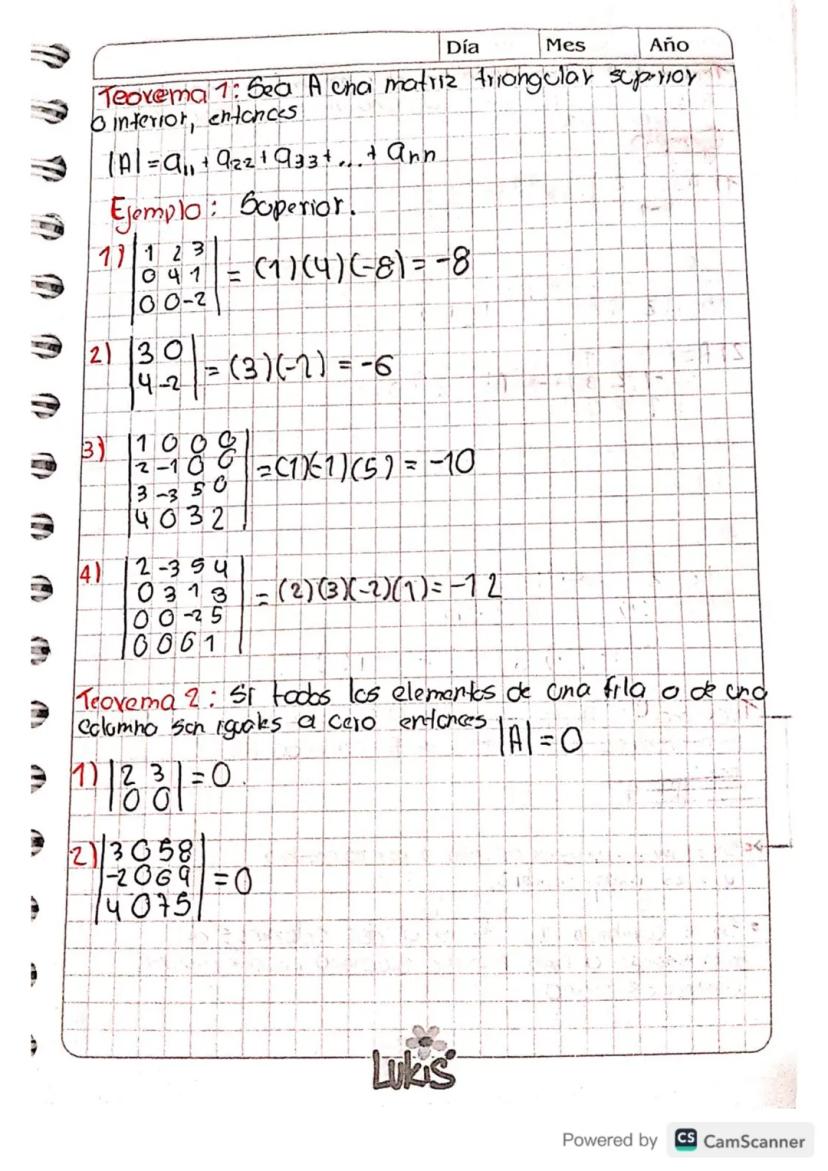 Día Mes Año
Teorema 1: Sea A una matriz triangular superior
o inferior, entonces
|A| = a₁₁ + a₂₂ + a₃₃ + ... + ann
Ejemplo: Superior.
1) |1 2 3|
|0 4 1| = (1)(4)(-8) = -8
|0 0 -2|
2) |3 0|
|4 -2| = (3)(-2) = -6
3) |1 0 0 0|
|2 -1 0 0| = (1)(-1)(5) = -10
|3 -3 5 0|
|4 0 3 2|
4) |2 -3 5 4|
|0 3 1 3| = (2)(3)(-2)(1) = -12
|0 0 -2 5|
|0 0 0 1|
Teorema 2: Si todos los elementos de una fila o de una
columna son iguales a cero entonces |A| = 0
1) |2 3| = 0
|0 0|
2) |3 0 5 8|
|-2 0 6 9| = 0
|4 0 7 5|
Lukis
Powered by CS CamScanner